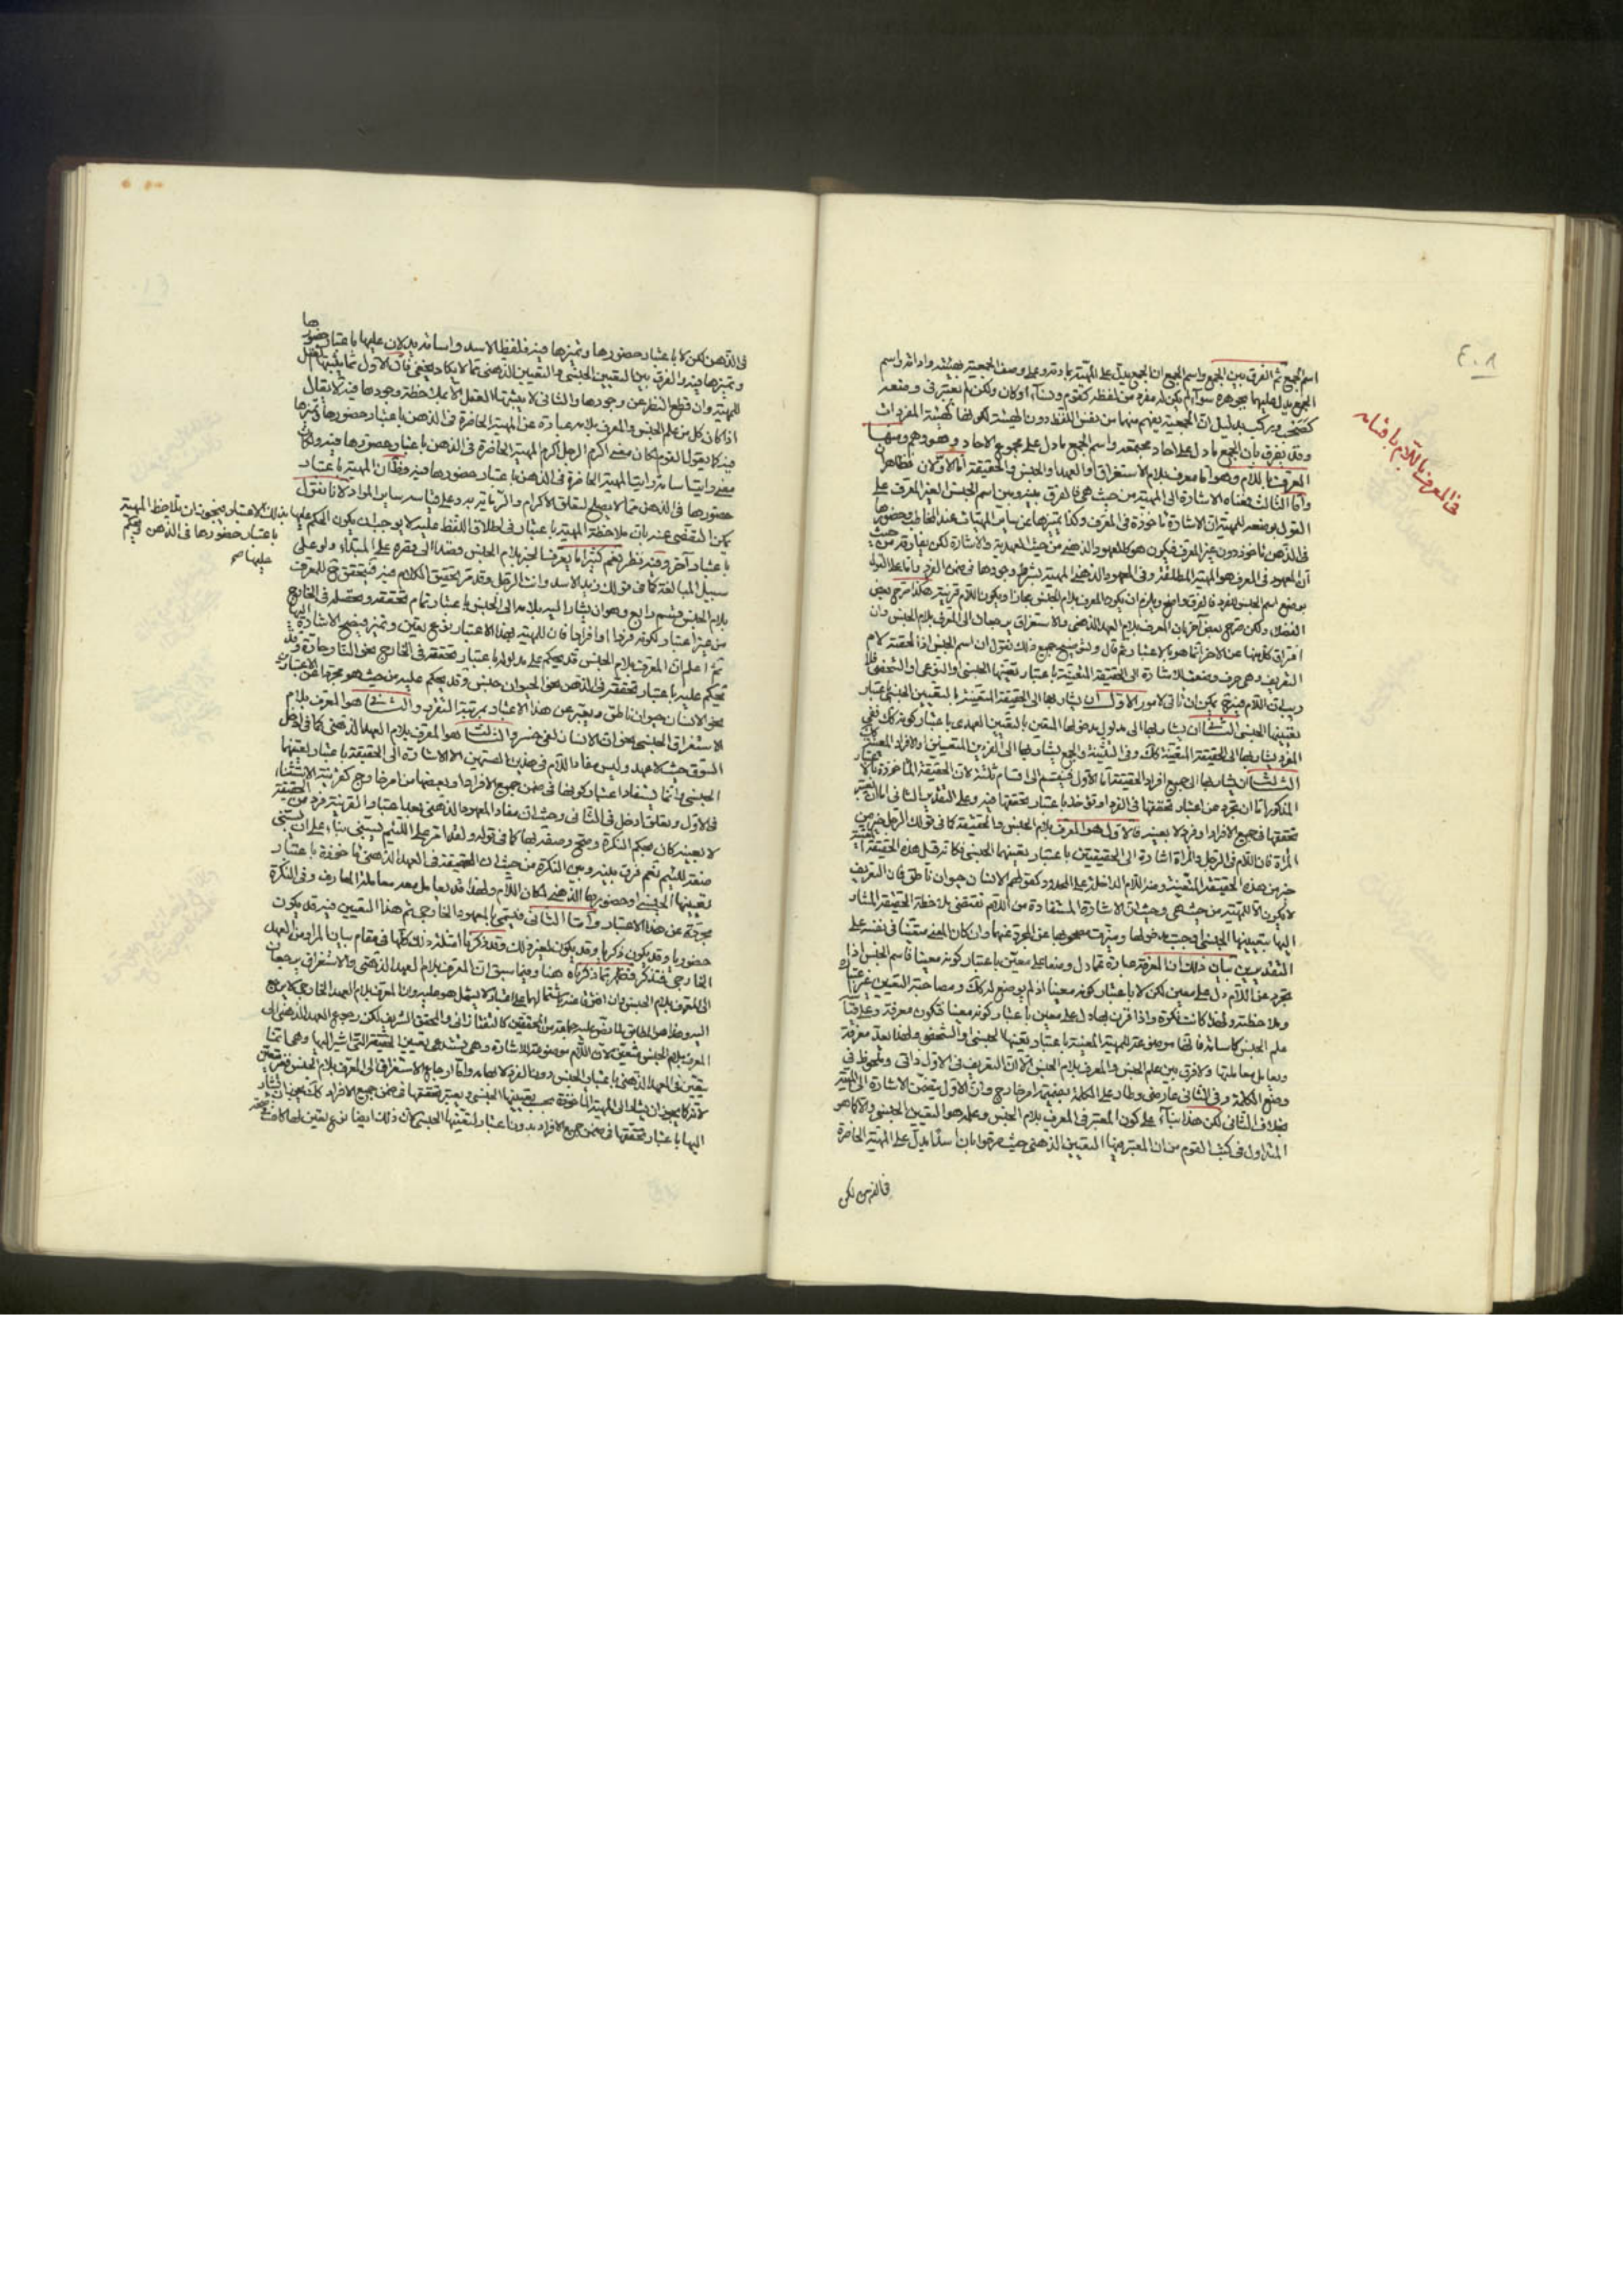 اسم الجمع ثم الفرق بين الجمع واسم الجمع ان الجمع يدل على المهية بمادته وعلى وصف الجمعية بهيئته واداته واسم
الجمع يدل عليهما بجوهره سواء لم يكن له مفرد من لفظه كقوم ونساء او كان ولكن لم يعتبر في وضعه
كصحب وركب بدليل ان الجمعية يفهم منهما من نفس اللفظ دون الهيئة لكونها كهيئة المفردات
وقد يفرق بان الجمع ما دل على احاد مجتمعه واسم الجمع ما دل على مجموع الاحاد وهو وهم ومنها
المعرف باللام وهو اما معرف بلام الاستغراق او العهد او الجنس والحقيقة اما الاولان فظاهر
واما الثالث فمعناه الاشارة الى المهية من حيث هي فالفرق بينه وبين اسم الجنس الغير المعرف على
القول بوضعه للمهية ان الاشارة ماخوذة في المعرف وكذا تميزها عن ساير المهيات عند المخاطب وحضورها
في الذهن ماخوذ دون غير المعرف فيكون هو كالمعهود الذهني من حيث العهدية والاشارة لكن يفارقه من حيث
ان المعهود في المعرف هو المهية المطلقة وفي المعهود الذهني المهية بشرط وجودها في ضمن الفرد واما على القول
بوضع اسم الجنس للفرد فالفرق واضح ويلزم ان يكون المعرف بلام الجنس مجازا ويكون اللام قرينة هكذا صرح بعض
الفضلاء ولكن صرح بعض اخر بان المعرف بلام العهد الذهني والاستغراق يرجعان الى المعرف بلام الجنس وان
افتراق كل منها عن الاخر انما هو بالاعتبار ثم قال ولتوضيح جميع ذلك نقول ان اسم الجنس اذا لحقته لام
التعريف وهي حرف وضعت للاشارة الى الحقيقة المتعينة باعتبار تعينها الجنسي او النوعي او الشخصي
تعيينها الجنسي الثاني ان يشار بها الى مدلول مدخولها المتعين بالتعيين العهدي باعتبار كونه كك ففي
المفرد يشار بها الى الحقيقة المتعينة كك وفي التثنية والجمع يشار بها الى الفردين المتعينين او الافراد المعينة
الثالث ان يشار بها الى جميع افراد الحقيقة اما الاول فينقسم الى اقسام ثلثة لان الحقيقة الماخوذة
تحققها في جميع الافراد او فرد لا بعينه فالاول هو المعرف بلام الجنس والحقيقة كما في قولك الرجل خير من
المراة فان اللام في الرجل والمراة اشارة الى الحقيقتين باعتبار تعينهما الجنسي فكانه قيل هذه الحقيقة المتعينة
خير من هذه الحقيقة المتعينة ومنه اللام الداخلة على الحدود كقولهم الانسان حيوان ناطق فان التعريف
لا يكون الا للمهية من حيث هي وحيث ان الاشارة المستفادة من اللام تقتضي ملاحظة الحقيقة المشار
اليها بتعيينها الجنسي
التقديرين بيان ذلك ان المعرفة عبارة عما دل وضعا على معين باعتبار كونه معينا فاسم الجنس اذا
تجرد عن اللام دل على معين لكن لا باعتبار كونه معينا اذ لم يوضع له كك ومصاحبة التعيين غير اعتباره
وملاحظته ولهذا كانت نكرة واذا قرن بها دل على معين باعتبار كونه معينا فتكون معرفة
علم الجنس كاسامة فانها موضوعة للمهية المعينة باعتبار تعينها الجنسي او الشخصي ولهذا يعد معرفة
ويعامل معاملتها ولا فرق بين علم الجنس والمعرف بلام الجنس الا ان التعريف في الاول ذاتي وملحوظ في
وضع الكلمة وفي الثاني عارضي وطار على الكلمة بضميمة امر خارج وان الاول يتضمن الاشارة الى المهية
بخلاف الثاني لكن هذا بناء على كون المعتبر في المعرف بلام الجنس وعلمه هو التعين الجنسي والا كما هو
المتداول في كتب القوم من ان المعتبر فيهما التعيين الذهني حيث صرحوا بان اسدا يدل على المهية الحاضرة
في الذهن لكن
في المعرف باللام باقسامه
٤٠٨
في الذهن لكن لا باعتبار حضورها وتميزها فيه فلفظا الاسد واسامة يدلان عليها باعتبار حضورها
وتميزها فيه والفرق بين التعيين الجنسي والتعيين الذهني مما لا يكاد يخفى فان الاول مما يثبتها العقل
للمهية وان قطع النظر عن وجودها والثاني لا يثبتها العقل الا بملاحظة وجودها فيه لا يقال
اذا كان كل من علم الجنس والمعرف بلامه عبارة عن المهية الحاضرة في الذهن باعتبار حضورها وتميزها
فيه كما يقول القوم لكان معنى اكرم الرجل اكرم المهية الحاضرة في الذهن باعتبار حضورها فيه ولكان
معنى رايت اسامة رايت المهية الحاضرة في الذهن باعتبار حضورها فيه وظ ان المهية باعتبار
حضورها في الذهن مما لا يصلح لتعلق الاكرام والرؤية به وعلى قياسه ساير الموارد لانا نقول
يمكن التفصي عنه بان ملاحظة المهية باعتبار في اطلاق اللفظ عليه لا يوجب ان يكون الحكم عليها بذلك الاعتبار فيجوز ان يلاحظ المهية
باعتبار حضورها في الذهن ويحكم
عليها صح
باعتبار آخر وفيه نظر نعم كثيرا ما يعرف الخبر بلام الجنس قصدا الى قصره على المبتداء ولو على
سبيل المبالغة كما في قولك زيد الاسد وانت الرجل وقد مر تحقيق الكلام فيه فيتحقق ح للمعرف
بلام الجنس قسم رابع وهو ان يشار اليه بلامه الى الجنس باعتبار تمام تحققه وتحصله في الخارج
من غير اعتبار لكونه فردا او افرادا فان للمهية بهذا الاعتبار نوع تعين وتميز فيصح الاشارة اليها
ثم اعلم ان المعرف بلام الجنس قد يحكم على مدلوله باعتبار تحققه في الخارج نحو النار حارة وقد
يحكم عليه باعتبار تحققه في الذهن نحو الحيوان جنس وقد يحكم عليه من حيث هو مجردا عن الاعتبارين
نحو الانسان حيوان ناطق ويعبر عن هذا الاعتبار بمرتبة التقرر والثاني هو المعرف بلام
الاستغراق الجنسي نحو ان الانسان لفي خسر والثالث هو المعرف بلام العهد الذهني كما في ادخل
السوق حيث لا عهد وليس مفاد اللام في هذين القسمين الا الاشارة الى الحقيقة باعتبار تعينها
الجنسي وانما يستفاد اعتبار كونها في ضمن جميع الافراد او بعضها من امر خارج كقرينة الاستثناء
في الاول وتعلق ادخل في الثاني وحيث ان مفاد المعهود الذهني بعد اعتبار القرينة فرد من الحقيقة
لا بعينه كان بحكم النكرة وصح وصفه بها كما في قوله ولقد امر على اللئيم يسبني بناء على ان يسبني
صفة للئيم نعم فرق بينه وبين النكرة من حيث ان الحقيقة في العهد الذهني ماخوذة باعتبار
تعيينها الجنسي او حضورها الذهني لمكان اللام ولهذا قد يعامل معه معاملة المعارف وفي النكرة
مجردة عن هذا الاعتبار واما الثاني فيسمى بالمعهود الخارجي ثم هذا التعيين فيه قد يكون
حضوريا وقد يكون ذكريا وقد يكون لغير ذلك وقد ذكرنا امثلة ذلك كلها في مقام بيان المراد من العهد
الخارجي فتذكر فظهر بما ذكرناه هنا وفيما سبق ان المعرف بلام العهد الذهني والاستغراق يرجعان
الى المعرف بلام الجنس
اليه وهذا هو المطابق لما نص عليه جماعة من المحققين كالتفتازاني والمحقق الشريف لكن رجوع العهد الذهني الى
المعرف بلام الجنس متعين لان اللام موضوعة للاشارة وهي تستدعي تعيين الحقيقة التي اشير اليها وهي انما
يتعين في العهد الذهني باعتبار الجنس دون الفرد لابهامه واما ارجاع الاستغراق الى المعرف بلام الجنس فغير متعين
لانه كما يجوز ان يشار الى المهية الماخوذة بحسب تعيينها الجنسي ويعتبر تحققها في ضمن جميع الافراد كك يجوز ان يشار
اليها باعتبار تحققها في ضمن جميع الافراد بدون اعتبار لتعيينها الجنسي لان ذلك ايضا نوع تعين لها كاف في صحة